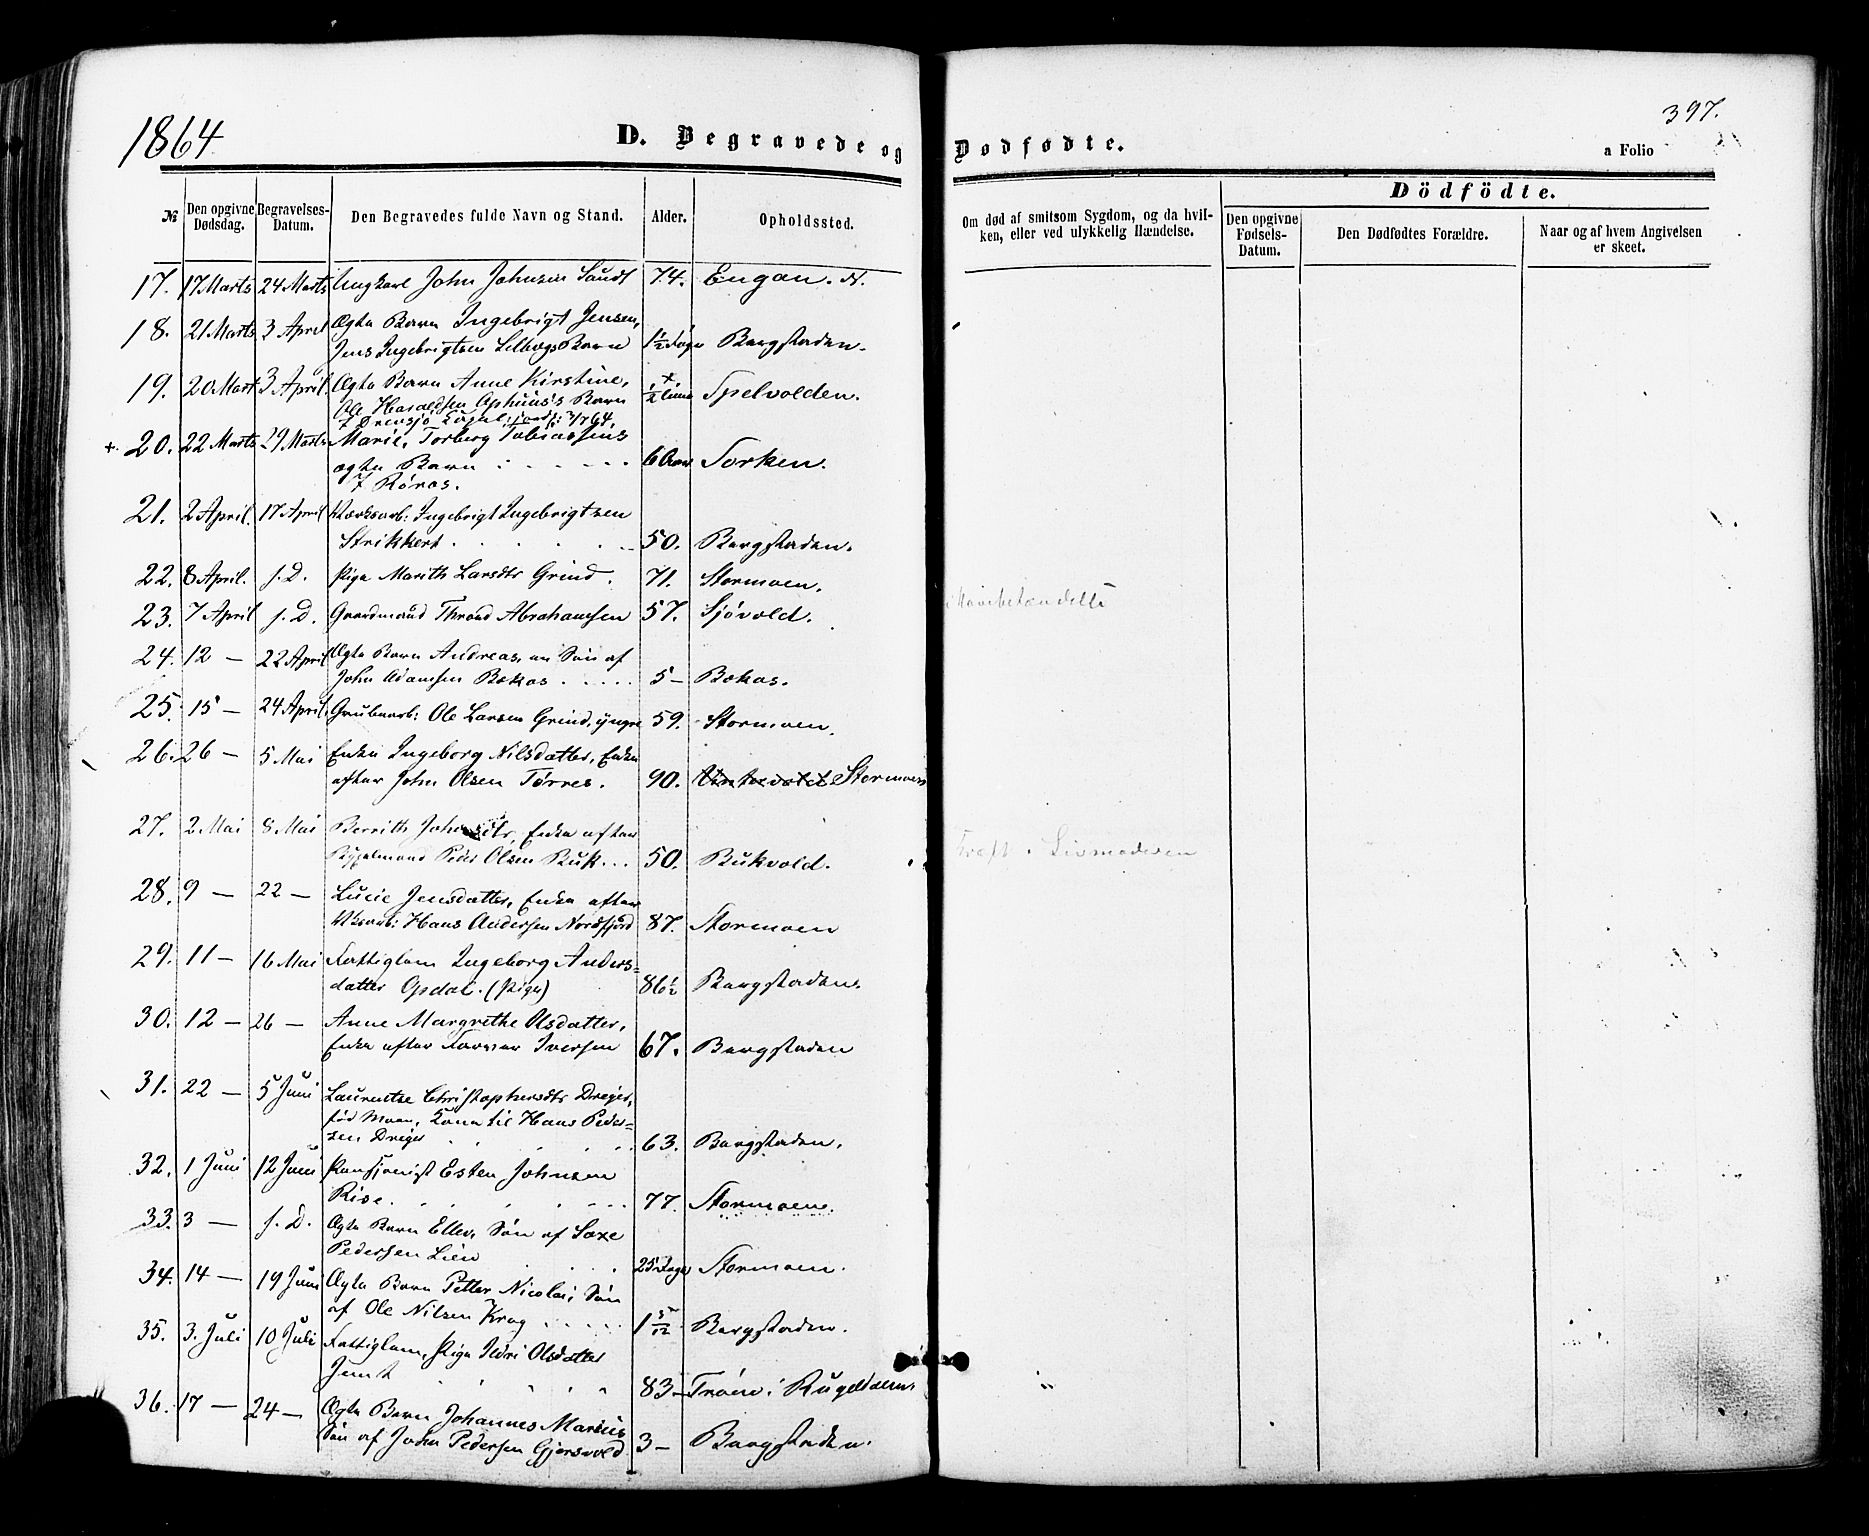 1864
D. Begravede og Dødfødte.
397.
a Folio
№
Den opgivne Dødsdag.
Begravelses-Datum.
Den Begravedes fulde Navn og Stand.
Alder.
Opholdssted.
Om død af smitsom Sygdom, og da hvil-
ken, eller ved ulykkelig Hændelse.
Dödfödte.
Den opgivne Fødsels-Datum.
Den Dødfødtes Forældre.
Naar og af hvem Angivelsen er skeet.
17. 17 Marts 24 Marts Ungkarl John Johnsen Sundt 74. Engan. N.
18. 21 Marts 3 April Ægte Barn Ingebrigt Jensen,
Jens Ingebrigtsen Barn 1½ Dage Bergstaden.
19. 20 Mart 3 April. Ægte Barn Anne Kirstine,
Ole Haraldsen Aphuus's Barn ½ Time Spelvolden.
3/7 64.
+ 20. 22 Marts 29 Marts Marie, Torberg Tobiassens
ægte Barn 6 Aar Torken.
7 Røros.
21. 2 April. 17 April Værksarb: Ingebrigt Ingebrigtsen
Strikkert 50. Bergstaden.
22. 8 April. s. D. Pige Marith Larsdtr Grind. 71. Stormoen.
23. 7 April s. D. Gaardmand Thrond Abrahamsen 57. Sjøvold.
24. 12 — 22 April Ægte Barn Andreas, en Søn af
John Adamsen Bekos 5 — Bekos.
25. 15 — 24 April. Grubearb: Ole Larsen Grind, yngre 59. Stormoen.
26. 26 — 5 Mai Enke Ingeborg Nilsdatter, Enke
efter John Olsen Tørres. 90. Stormoen
27. 2 Mai 8 Mai Berrith Johnsdtr, Enke efter
Peder Olsen Buk 50. Bukvold.
28. 9 — 22 — Lucie Jensdatter, Enke efter
Vksarb: Hans Andersen Nordfjord 87. Stormoen
29. 11 — 16 Mai Fattiglem Ingeborg Anders=
datter Opdal. (Pige) 86½ Bergstaden.
30. 12 — 26 — Anne Margrethe Olsdatter,
Enke efter Farver Iversen 67. Bergstaden
31. 22 — 5 Juni Laurentse Christophersdtr Dreyer,
fød Moen, Kone til Hans Peder=
sen Dreyer 63. Bergstaden.
32. 1 Juni 12 Juni Pensjonist Esten Johnsen
Rise. 77. Stormoen.
33. 3 — s. D. Ægte Barn Ellev, Søn af Saxe
Pedersen Lien 25 Dage Stormoen.
34. 14 — 19 Juni Ægte Barn Petter Nicolai Søn
af Ole Nilsen Krog 1 5/12 Bergstaden.
35. 3. Juli 10 Juli Fattiglem, Pige Ildri Olsdatter
Jemt 83 — Trøen i Rugeldalen
36. 17 — 24 — Ægte Barn Johannes Marius
Søn af John Pedersen Gjersvold 3 — Bergstaden.
Mavebetændelse
Kræft i Livmoderen